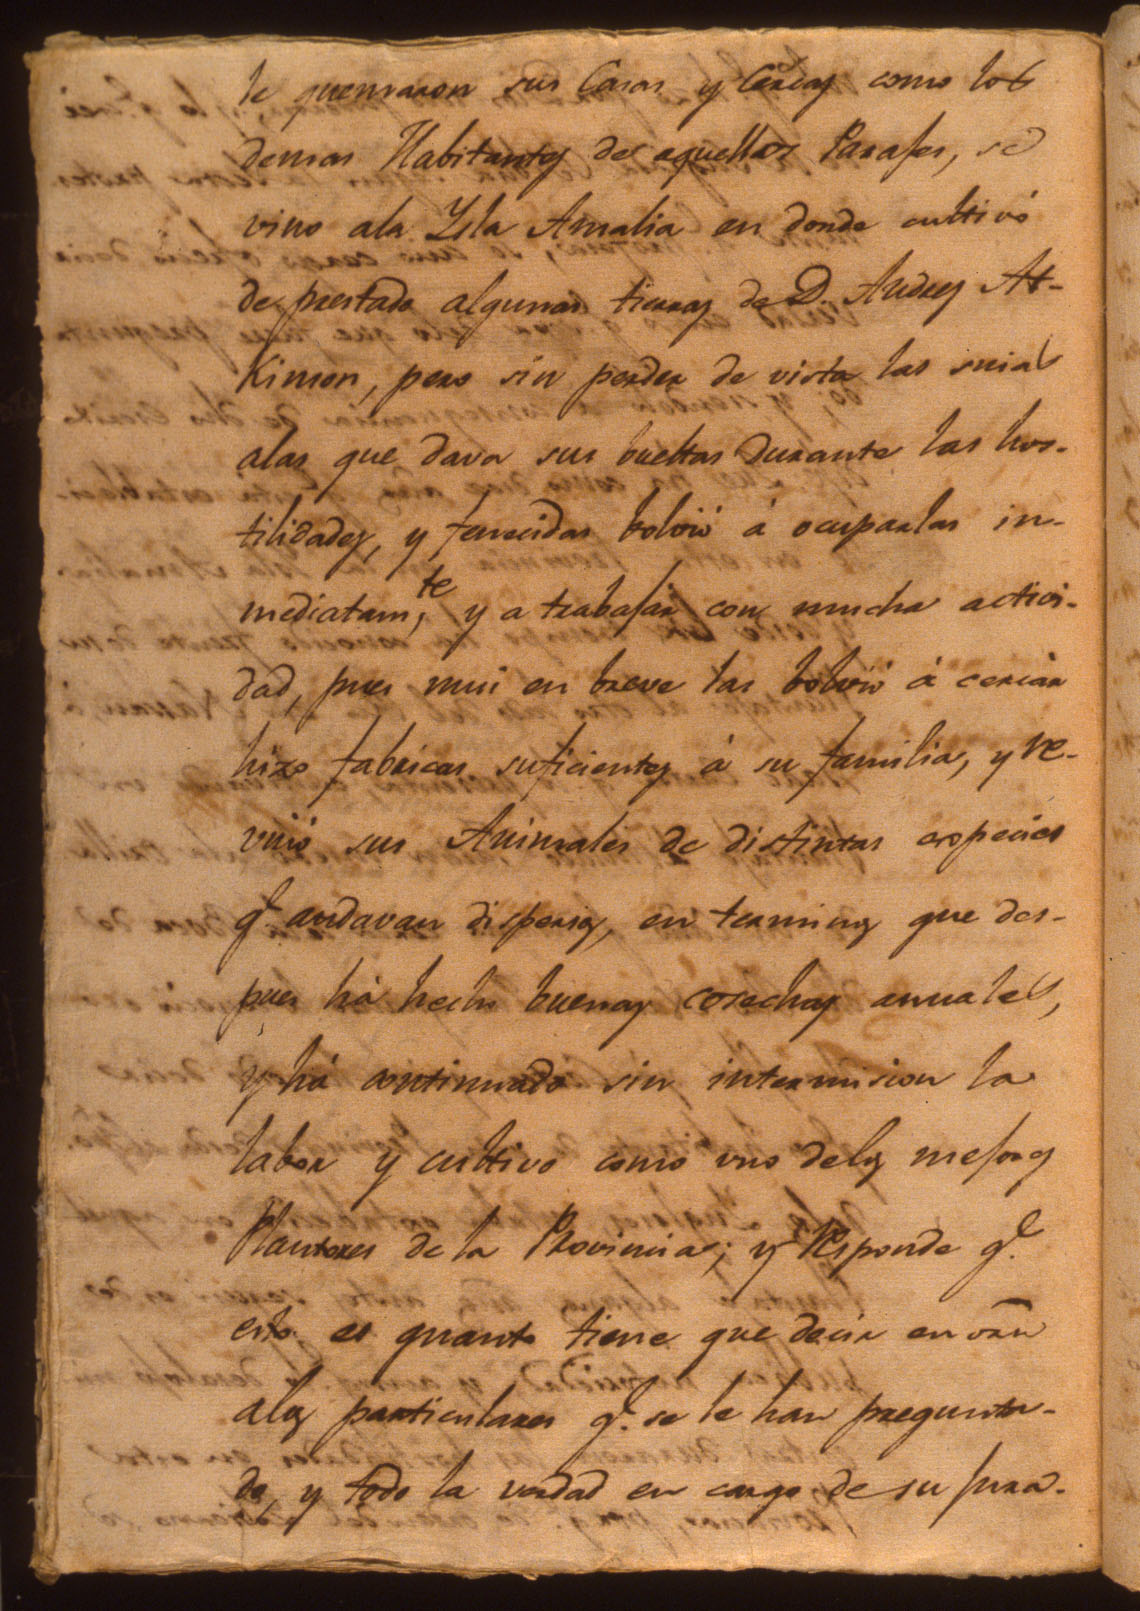 le quemaron sus Casas y Cercas como los
demas Habitantes de aquellos Parajes, se
vino ala Ysla Amalia en donde cultivó
de prestado algunas tierras de D. Andres At-
kinson, pero sin perder de vista las suias
alas que dava sus bueltas durante las hos-
tilidades, y fenecidas bolvió á ocuparlas in-
mediatam,te y a trabajar con mucha activi-
dad, pues mui en breve las bolvió á cercar
hizo fabricas suficientes á su familia, y re-
unió sus Animales de distintas especies
q.e andavan dispersos, en terminos que des-
pues há hecho buenas cosechas anuales,
y há continuado sin intermision la
labor y cultivo como uno delos mejores
Plantores de la Provincia; y Responde q.e
esto es quanto tiene que decir en
alos particulares q.e se le han pregunta-
do, y todo la verdad en cargo de su jura-